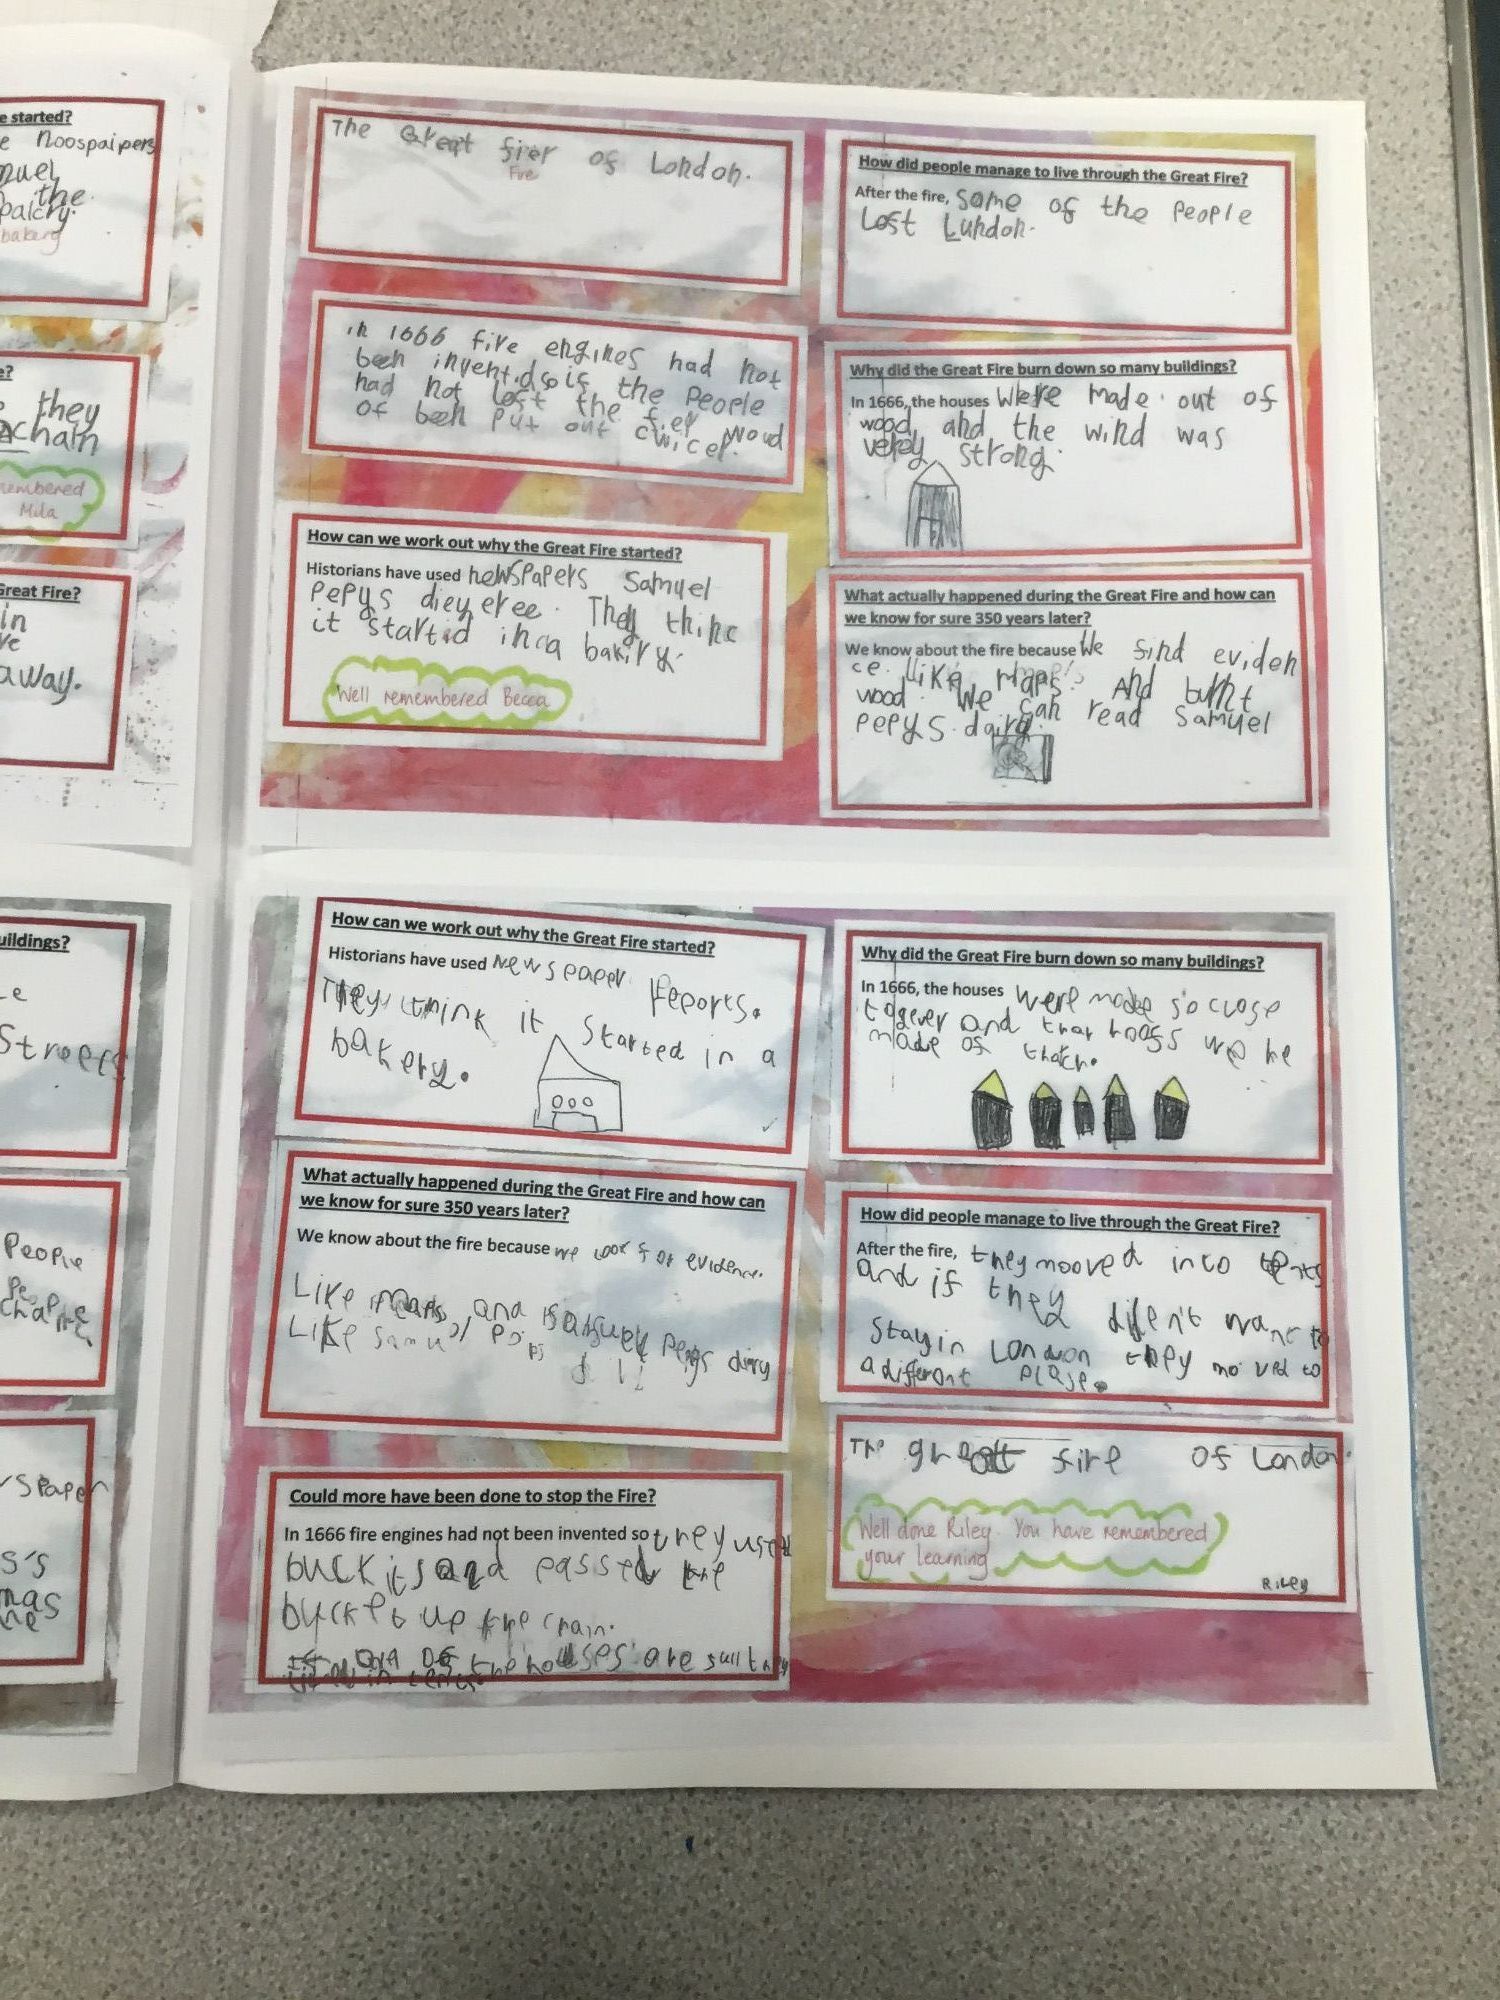 e started?
e Noospaipers
muel
n the
palcry.
bakery
e?
they
chain
emembered
Mila
Great Fire?
in
ve
away.
The Great fier of London.
Fire
in 1666 five engines had not
been invent.d so is the People
had not lost the fier woud
of been put out cwicer.
How can we work out why the Great Fire started?
Historians have used newspapers Samuel
Pepys dieyeree. They thinc
it startid in a bakiry.
Well remembered Becca
How did people manage to live through the Great Fire?
After the fire, some of the people
Lost Lundon.
Why did the Great Fire burn down so many buildings?
In 1666, the houses were made out of
wood and the wind was
verey strong.
What actually happened during the Great Fire and how can
we know for sure 350 years later?
We know about the fire because We find eviden
ce. like maps And burnt
wood. We can read Samuel
pepys dairy.
uildings?
Streets
People
spaper
s's
mas
How can we work out why the Great Fire started?
Historians have used Newspaper reports.
They think it Started in a
bakery.
What actually happened during the Great Fire and how can
we know for sure 350 years later?
We know about the fire because we look for evidence.
Like maps and
Like Samul pepys diary
Could more have been done to stop the Fire?
In 1666 fire engines had not been invented so they used
buck its and passed the
bucket up the chain.
the houses are still they
Why did the Great Fire burn down so many buildings?
In 1666, the houses were made so close
togever and thar hoogs we he
made of thatch.
How did people manage to live through the Great Fire?
After the fire, they mooved into tents
and if they diden't want to
Stay in London they moved to
a different plase.
The great fire of London.
Well done Riley. You have remembered
your learning
Riley